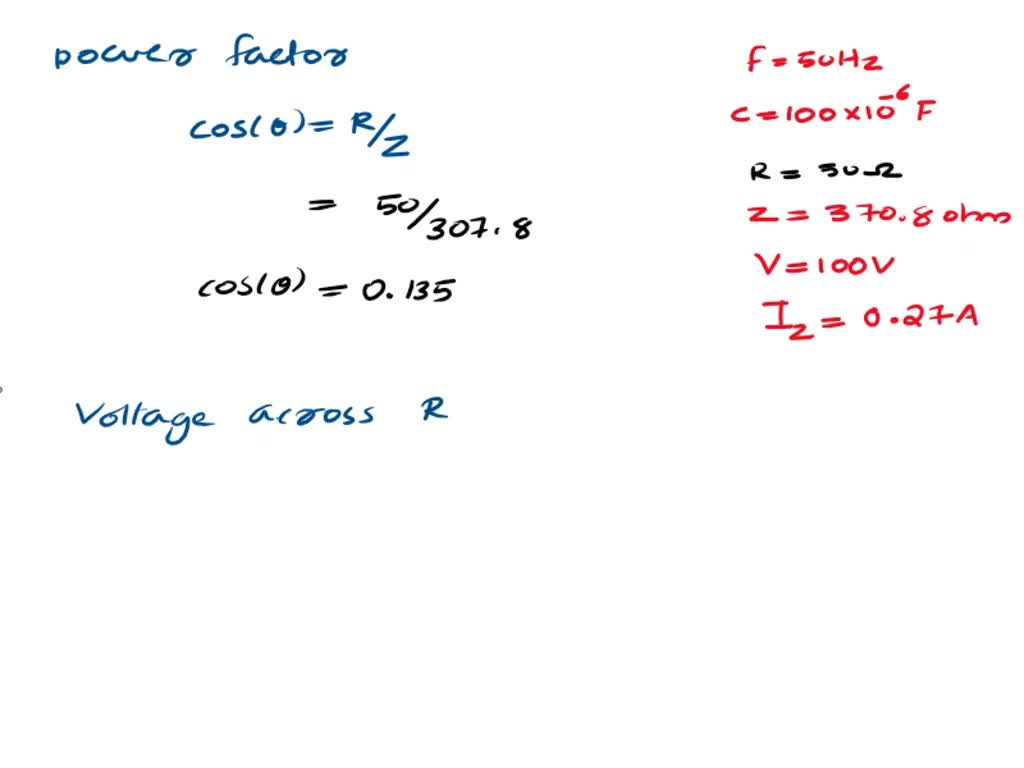 power factor
cos(θ) = R/Z
= 50/307.8
cos(θ) = 0.135
Voltage across R
f = 50Hz
C = 100 × 10⁻⁶ F
R = 50Ω
Z = 370.8 ohm
V = 100V
I_Z = 0.27A